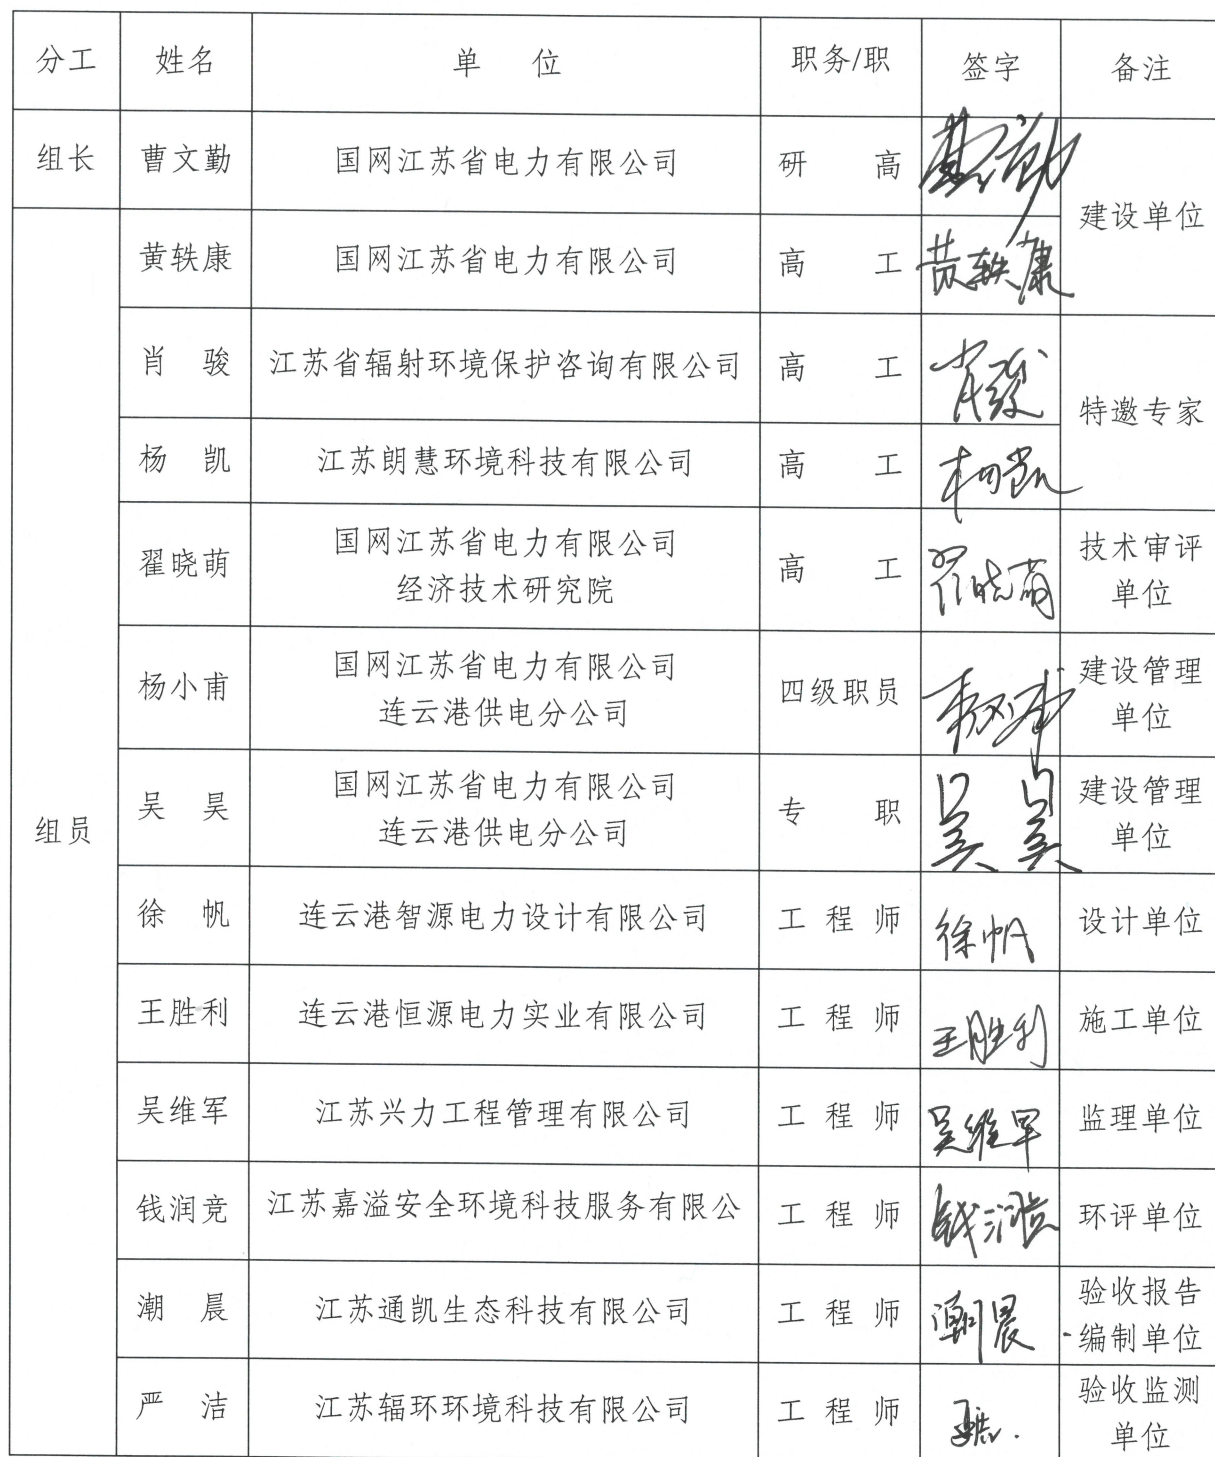 分工 姓名 单 位 职务/职 签字 备注
组长 曹文勤 国网江苏省电力有限公司 研 高 建设单位
黄轶康 国网江苏省电力有限公司 高 工 黄轶康
肖 骏 江苏省辐射环境保护咨询有限公司 高 工 肖骏 特邀专家
杨 凯 江苏朗慧环境科技有限公司 高 工 杨凯
翟晓萌 国网江苏省电力有限公司 高 工 翟晓萌 技术审评
经济技术研究院 单位
杨小甫 国网江苏省电力有限公司 四级职员 建设管理
连云港供电分公司 单位
组员
吴 昊 国网江苏省电力有限公司 专 职 吴昊 建设管理
连云港供电分公司 单位
徐 帆 连云港智源电力设计有限公司 工 程 师 徐帆 设计单位
王胜利 连云港恒源电力实业有限公司 工 程 师 王胜利 施工单位
吴维军 江苏兴力工程管理有限公司 工 程 师 吴维军 监理单位
钱润竞 江苏嘉溢安全环境科技服务有限公 工 程 师 环评单位
潮 晨 江苏通凯生态科技有限公司 工 程 师 潮晨 验收报告
编制单位
严 洁 江苏辐环环境科技有限公司 工 程 师 验收监测
单位